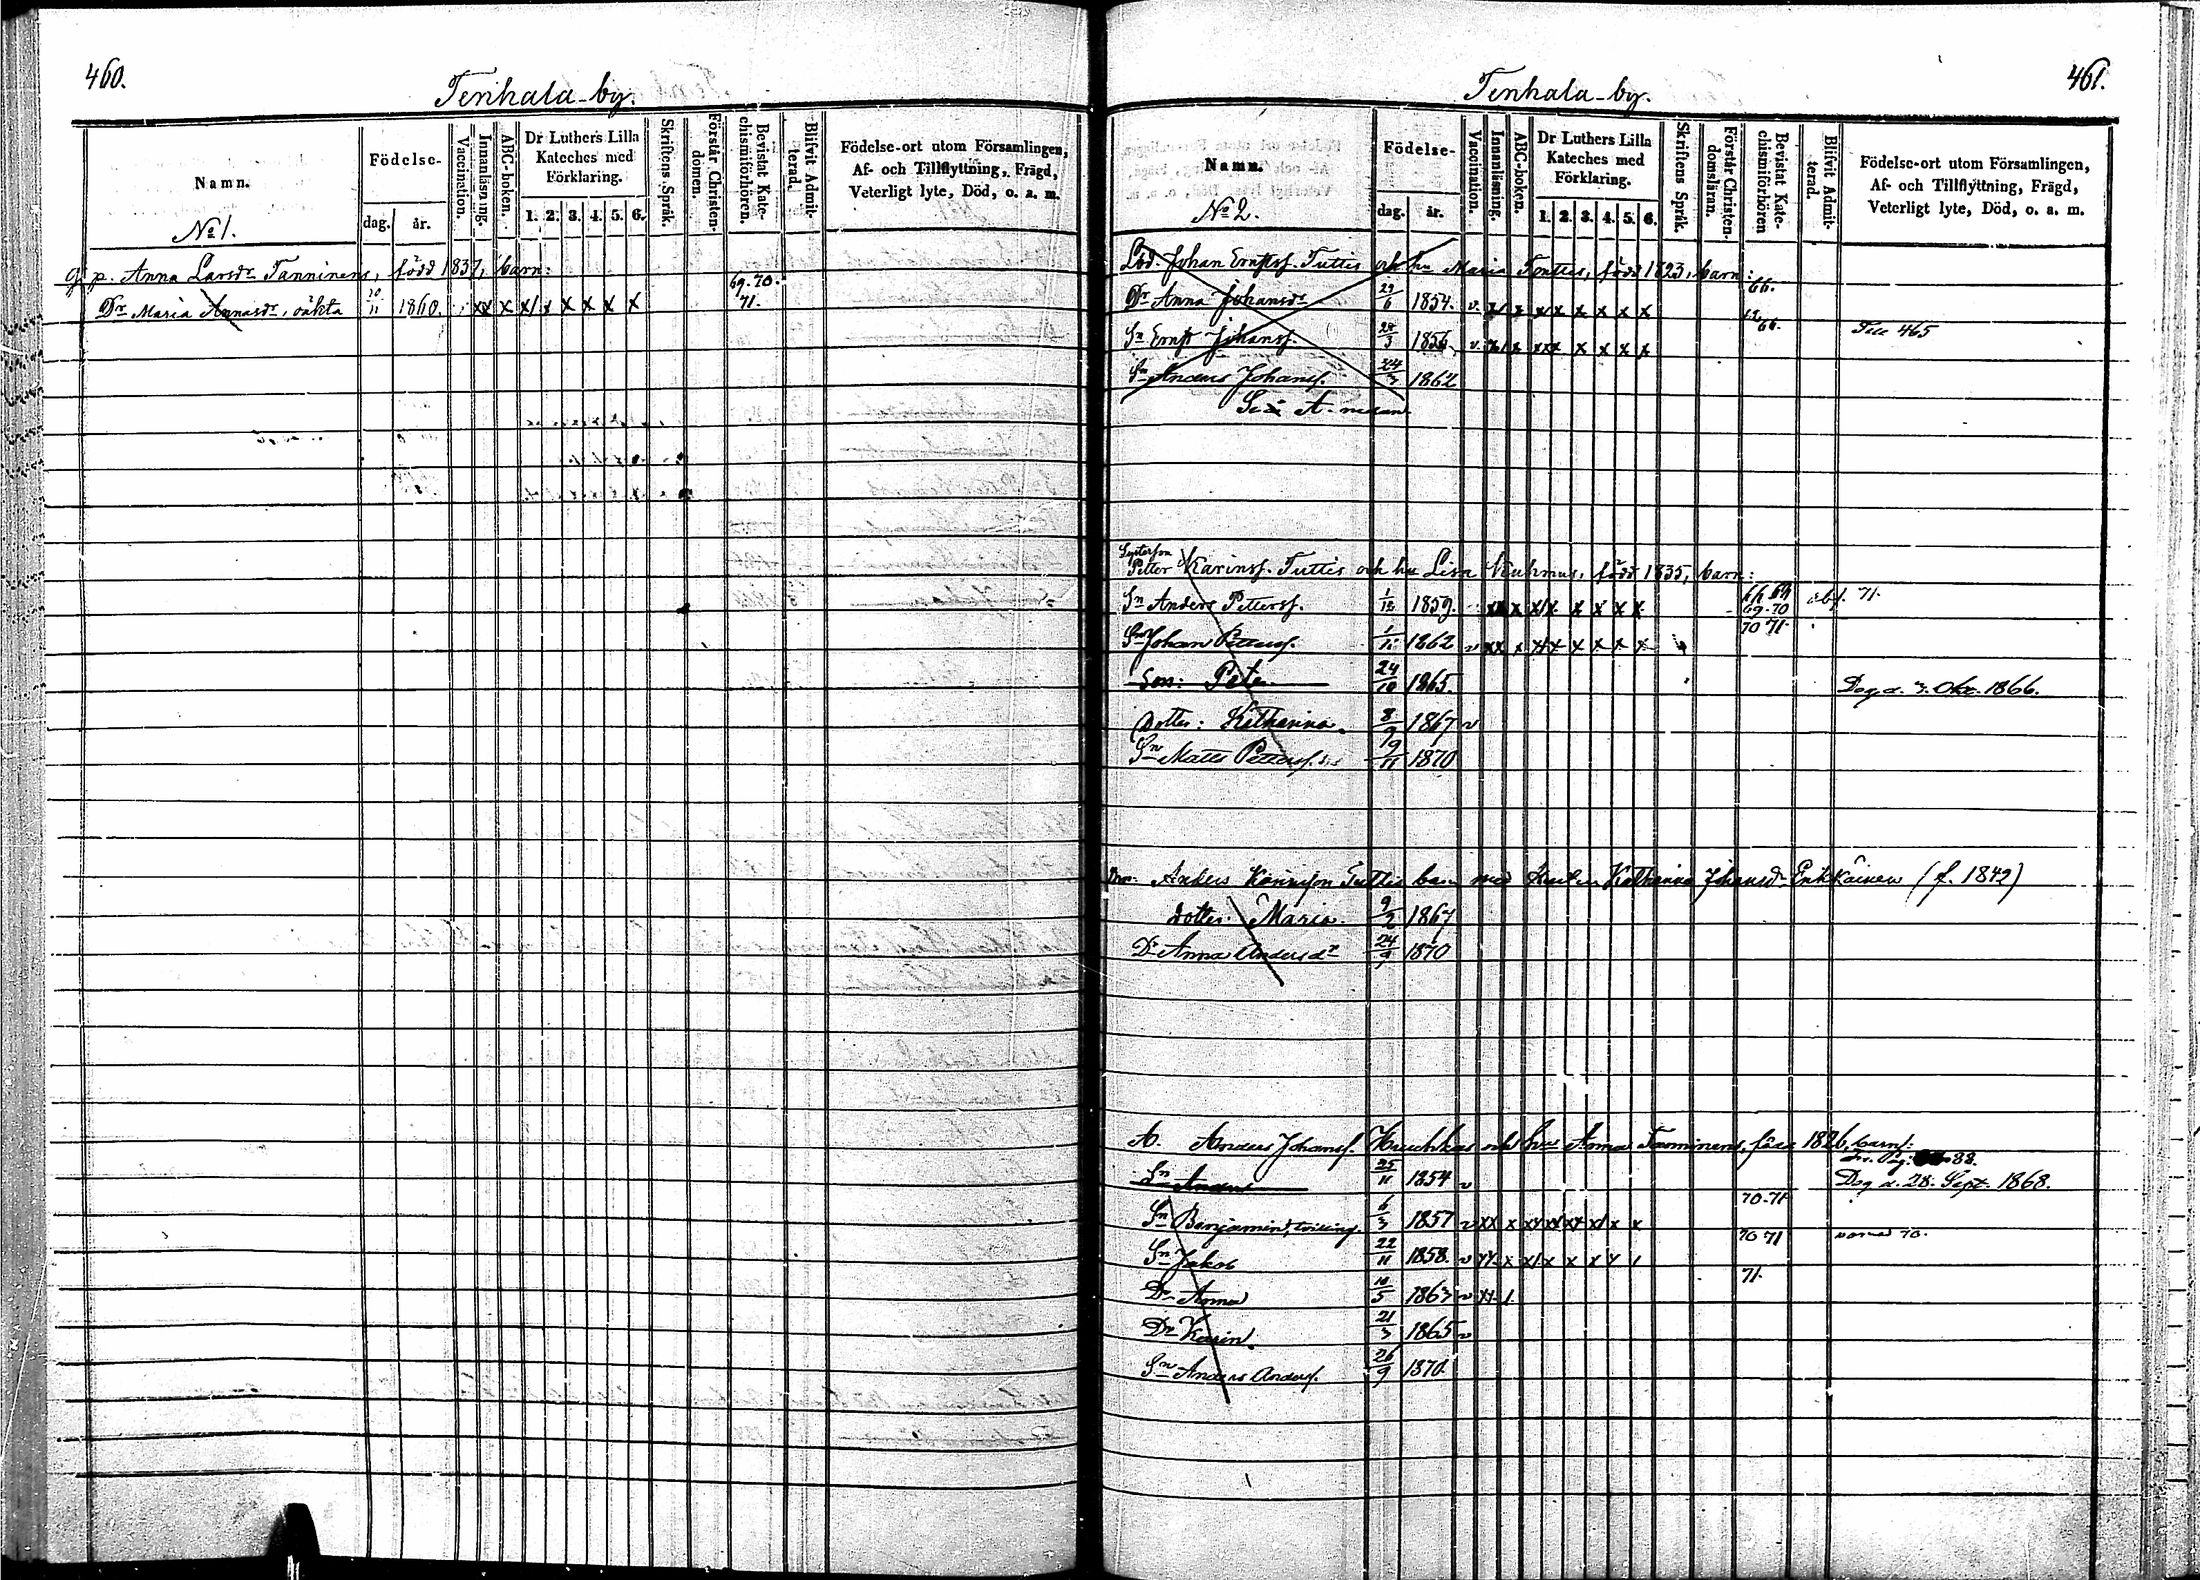 460.
Tenhala-by.
Namn.
No 1.
Födelse-
dag.
år.
Vaccination.
Innanläsning.
ABC-boken.
Dr Luthers Lilla
Kateches med
Förklaring.
1. 2. 3. 4. 5. 6.
Skriftens Språk.
Förstår Christen-
domen.
Bevistat Kate-
chismiförhören.
Blifvit Admit-
terad.
Födelse-ort utom Församlingen,
Af- och Tillflyttning, Frägd,
Veterligt lyte, Död, o. a. m.
p. Anna Larsdr Tanninens, född 1837, barn:
69.70.
Dr Maria Annasdr, oäkta 20/11 1860. xx x x/ x x x x x 71.
461.
Tenhala-by.
Namn.
No 2.
Födelse-
dag.
år.
Vaccination.
Innanläsning.
ABC-boken.
Dr Luthers Lilla
Kateches med
Förklaring.
1. 2. 3. 4. 5. 6.
Skriftens Språk.
Förstår Christen-
domsläran.
Bevistat Kate-
chismiförhören
Blifvit Admit-
terad.
Födelse-ort utom Församlingen,
Af- och Tillflyttning, Frägd,
Veterligt lyte, Död, o. a. m.
Johan Ernstsf. Tuttis och hu Maria Tonttes, född 1823, barn:
66.
Dr Anna Johansdr 29/6 1854. v. x/ x x/x x x x x
66.
Sn Ernst Johansf. 28/3 1856 v. x/ x xxx x x x x Till 465
Sn Anders Johansf. 24/3 1862
Se A. nedan
Systerson
Petter Karinsf. Tuttis och hu Lisa född 1835, barn:
Sn Anders Pettersf. 1/12 1859. xx x x/x x x x x 69.70 abs. 71.
70 71
Sn Johan Pettersf. 1/11 1862 v xx x xxx x x x x
Son: Peter 24/10 1865. Dog d. 3. Okt. 1866.
Dotter: Katharina. 8/9 1867 v
Sn Matts Pettersf. 19/11 1870
Anders Karinson Tuttis barn med hustrun Katharina Johansdr Enkkäinen (f. 1842)
dotter: Maria. 9/2 1867
Dr Anna Andersdr 24/9 1870
A. Anders Johansf. och hus Anna Tanninens, född 1826, barn:
88.
Sn Anders 25/11 1854 v Dog d. 28. Sept. 1868.
70.71
Sn Benjamin, tvilling. 6/3 1857 v xx x xx xx xx x/ x x
70 71 70.
Sn Jakob 22/11 1858. v xx x x/ x x x x /
71.
Dr Anna 10/5 1863 v xx /.
Dr Karin. 21/3 1865 v
Sn Anders Andersf. 26/9 1870.